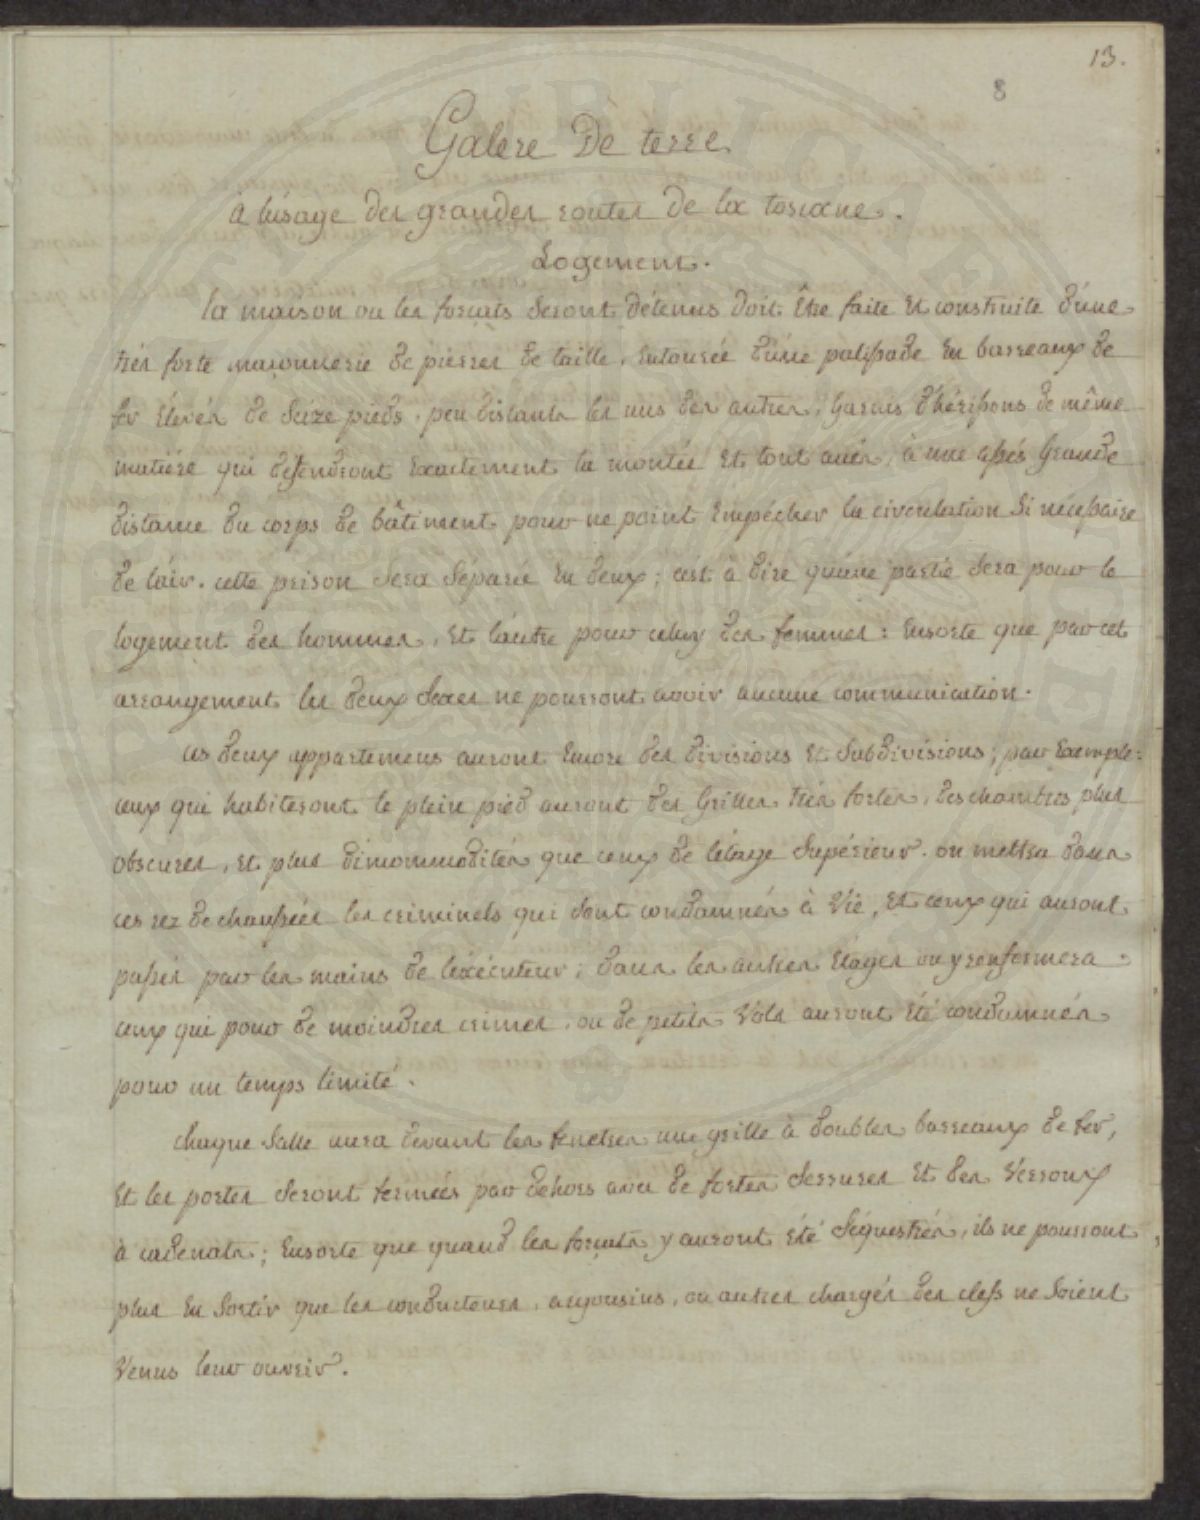 13.
8
Galere De terre
à lúsage des grandes routes de la toscane.
Logement.
la maison ou les forcats seront détenus doit Être faite Et construite d'une
trés forte maçonnerie de pierres de taille, Entourée d'une palissade En barreaux de
fer Élevés de seize pieds, peu distants les uns des autres, Garnis d'hérissons de même
matiére qui deffendront Exactement la montée Et tout accés, à une assés Grande
distance du corps de bâtiment pour ne point Empécher la circulation si nécessaire
de l'air. cette prison sera séparée En deux; cést à dire qu'une partie sera pour le
logement des hommes, Et l'autre pour celuy des femmes: Ensorte que par cet
arrangement les deux sexes ne pourront avoir aucune communication.
ces deux appartemens auront Encore des divisions Et subdivisions; par Exemple:
ceux qui habiteront le plein pied auront des Grilles trés fortes, des chambres plus
obscures, Et plus d'incommodités que ceux de l'étage supérieur. on mettra dans
ces rez de chaussées les criminels qui sont condamnés à Vie, Et ceux qui auront
passés par les mains de l'éxécuteur; dans les autres Etages on y renfermera
ceux qui pour de moindres crimes, ou de petits Vols auront Été condamnés
pour un temps limité.
chaque salle aura devant les fenetres une grille à doubles barreaux de fer,
Et les portes seront fermées par dehors avec de fortes serrures Et des Verroux
à cadenats; Ensorte que quand les forçats y auront été séquestrés, ils ne pourront
plus En sortir que les conducteurs, argousins, ou autres chargés des clefs ne soient
Venus leur ouvrir.